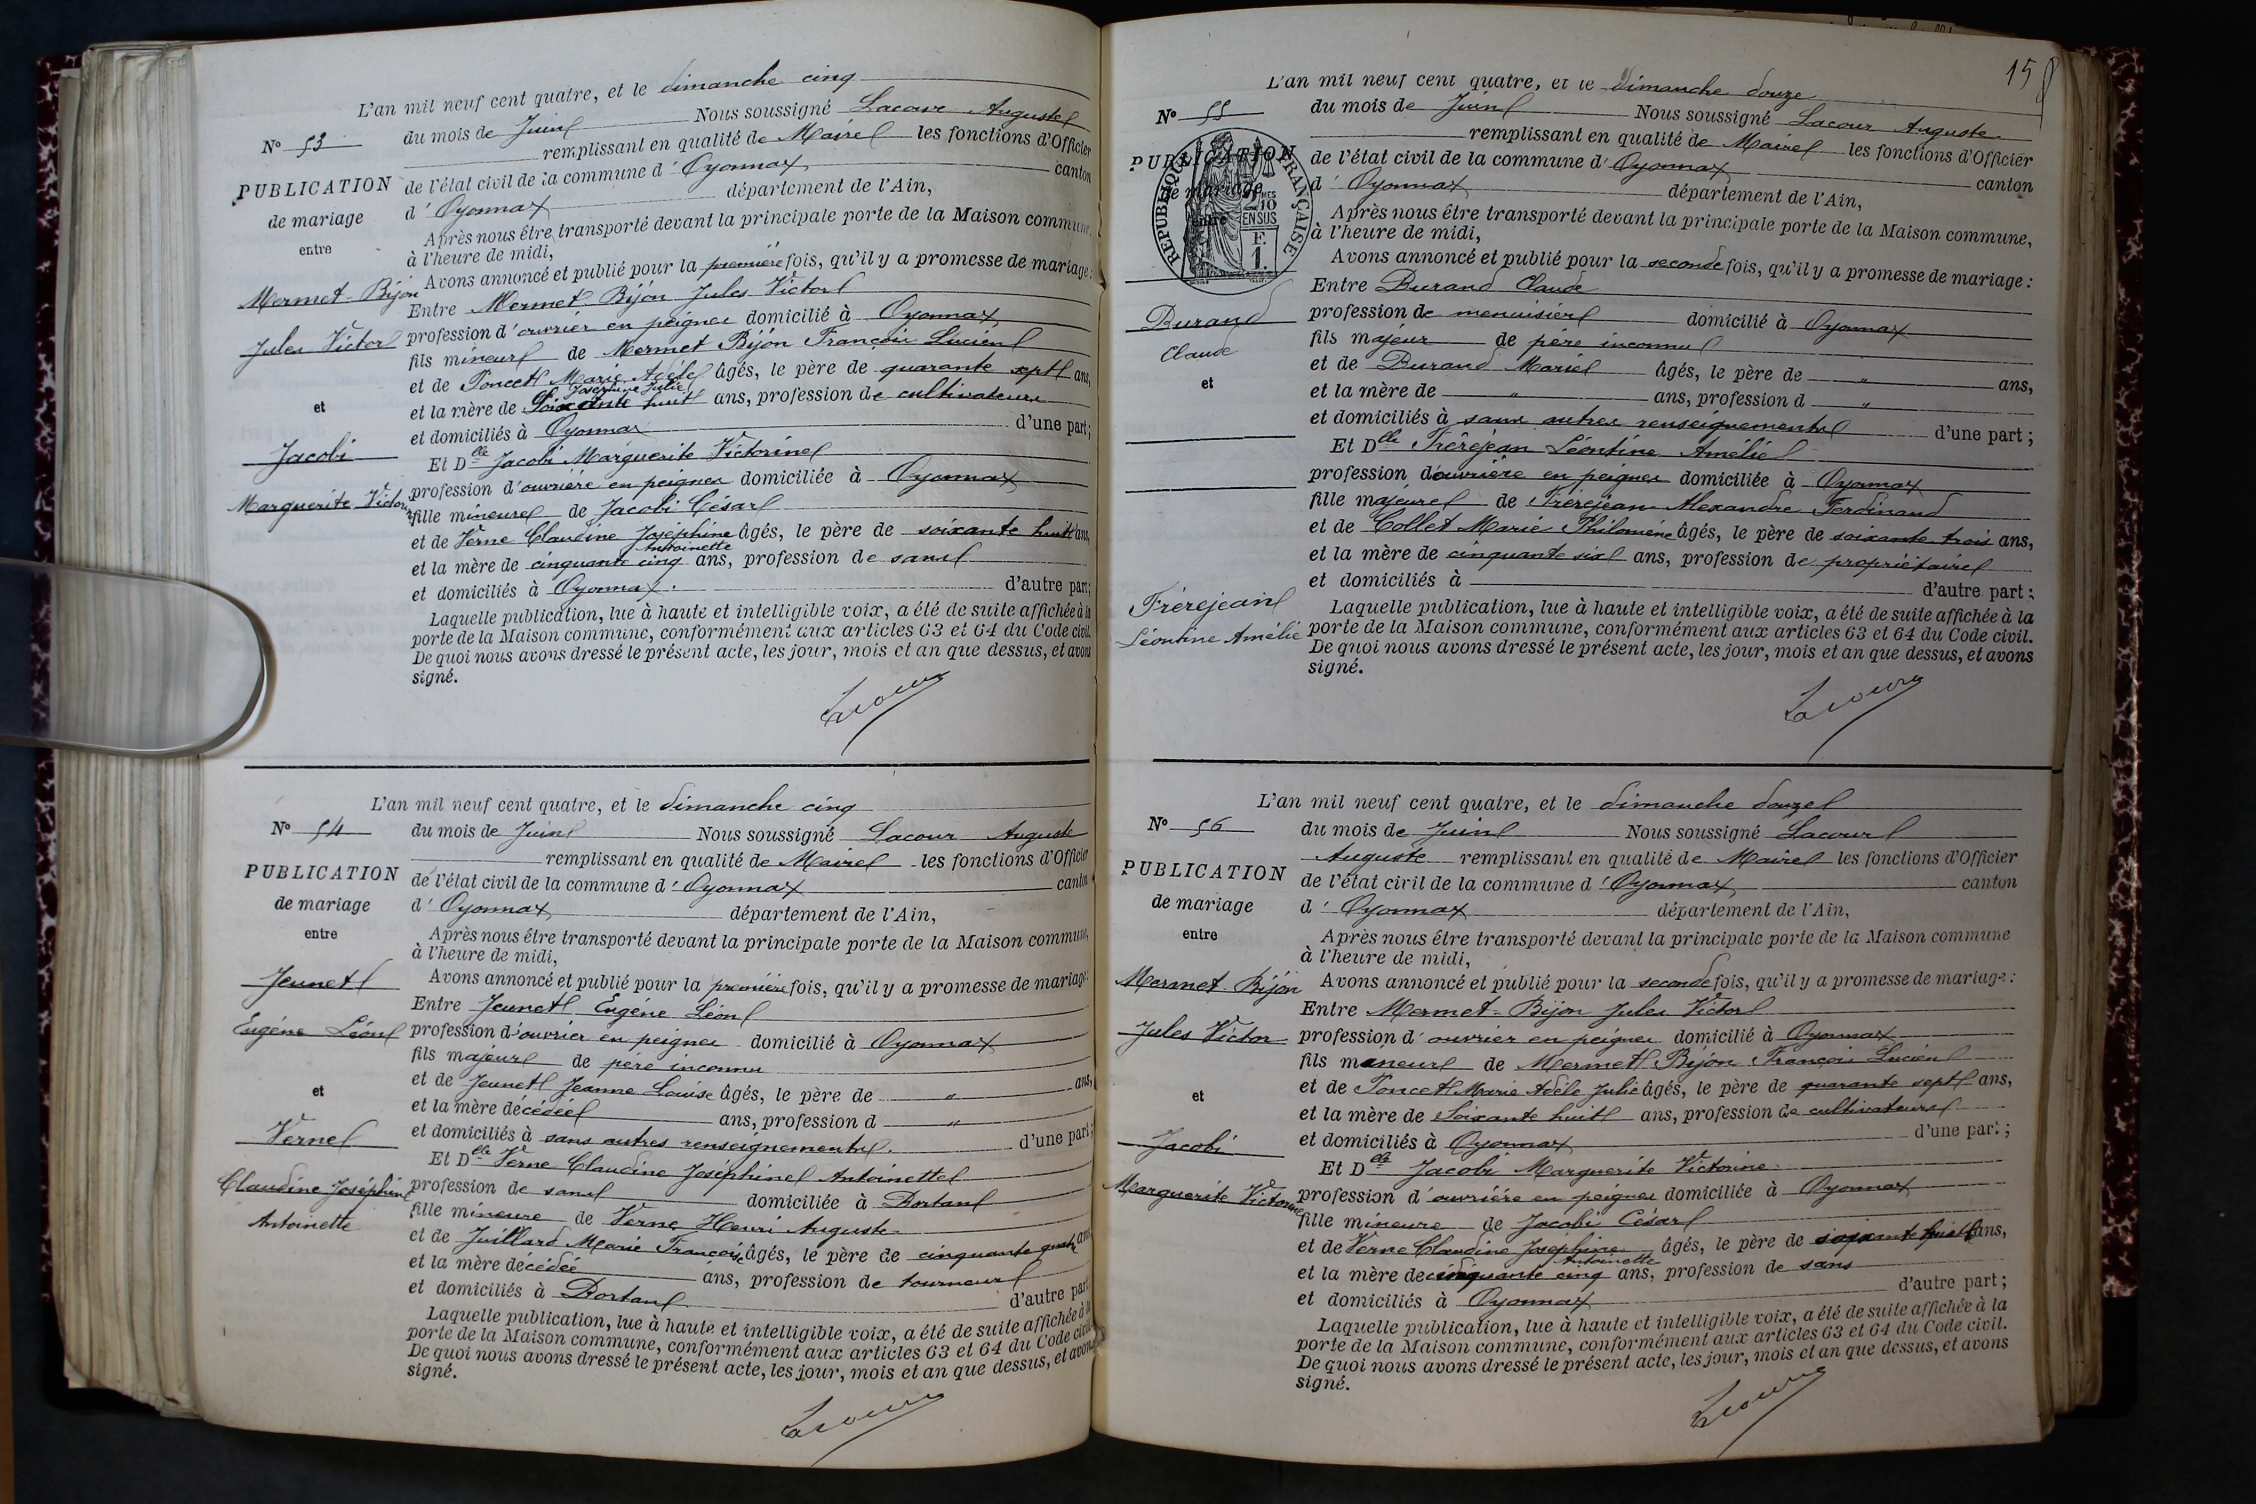 L'an mil neuf cent quatre, et le dimanche cinq
N° 53
du mois de Juin Nous soussigné Lacour Auguste
remplissant en qualité de Maire les fonctions d'Officier
PUBLICATION
de l'état civil de la commune d'Oyonnax canton
d'Oyonnax département de l'Ain,
de mariage
entre
Après nous être transporté devant la principale porte de la Maison commune,
à l'heure de midi,
Avons annoncé et publié pour la première fois, qu'il y a promesse de mariage:
Mermet-Bijon
Entre Mermet Bijon Jules Victor
Jules Victor
profession d'ouvrier en peignes domicilié à Oyonnax
fils mineur de Mermet Bijon François Lucien
et de Poncet Marie Adèle âgés, le père de quarante sept ans,
Joséphine Julie
et
et la mère de Soixante huit ans, profession de cultivateurs
et domiciliés à Oyonnax d'une part;
Jacobi
Et Dlle Jacobi Marguerite Victorine
Marguerite Victorine
profession d'ouvrière en peignes domiciliée à Oyonnax
fille mineure de Jacobi César
et de Verne Claudine Joséphine âgés, le père de soixante huit ans,
Antoinette
et la mère de cinquante cinq ans, profession de sans
et domiciliés à Oyonnax. d'autre part;
Laquelle publication, lue à haute et intelligible voix, a été de suite affichée à la
porte de la Maison commune, conformément aux articles 63 et 64 du Code civil.
De quoi nous avons dressé le présent acte, les jour, mois et an que dessus, et avons
signé.
Lacour
L'an mil neuf cent quatre, et le dimanche cinq
N° 54
du mois de Juin Nous soussigné Lacour Auguste
remplissant en qualité de Maire les fonctions d'Officier
PUBLICATION
de l'état civil de la commune d'Oyonnax canton
de mariage
d'Oyonnax département de l'Ain,
entre
Après nous être transporté devant la principale porte de la Maison commune,
à l'heure de midi,
Jeunet
Avons annoncé et publié pour la première fois, qu'il y a promesse de mariage:
Entre Jeunet Eugène Léon
Eugène Léon
profession d'ouvrier en peignes domicilié à Oyonnax
fils majeur de père inconnu
et de Jeunet Jeanne Louise âgés, le père de " ans,
et
et la mère décédée ans, profession d "
et domiciliés à sans autres renseignements. d'une part;
Verne
Et Dlle Verne Claudine Joséphine Antoinette
Claudine Joséphine
profession de sans domiciliée à Dortan
Antoinette
fille mineure de Verne Henri Auguste
et de Juillard Marie Françoise âgés, le père de cinquante quatre ans
et la mère décédée ans, profession de tourneur
et domiciliés à Dortan d'autre part
Laquelle publication, lue à haute et intelligible voix, a été de suite affichée à la
porte de la Maison commune, conformément aux articles 63 et 64 du Code civil
De quoi nous avons dressé le présent acte, les jour, mois et an que dessus, et avons
signé.
Lacour
158
L'an mil neuf cent quatre, et le dimanche douze
N° 55
du mois de Juin Nous soussigné Lacour Auguste
remplissant en qualité de Maire les fonctions d'Officier
PUBLICATION
de l'état civil de la commune d'Oyonnax canton
de mariage
d'Oyonnax département de l'Ain,
entre
RÉPUBLIQUE FRANÇAISE
2/10
EN SUS
F.
1.
Après nous être transporté devant la principale porte de la Maison commune,
à l'heure de midi,
Avons annoncé et publié pour la seconde fois, qu'il y a promesse de mariage:
Entre Durand Claude
Durand
profession de menuisier domicilié à Oyonnax
Claude
fils majeur de père inconnu
et de Durand Marie âgés, le père de " ans,
et
et la mère de " ans, profession d "
et domiciliés à sans autres renseignements d'une part;
Et Dlle Frèrejean Léontine Amélie
profession d'ouvrière en peignes domiciliée à Oyonnax
fille majeure de Frèrejean Alexandre Ferdinand
et de Collet Marie Philomène âgés, le père de soixante trois ans,
et la mère de cinquante six ans, profession de propriétaire
et domiciliés à d'autre part;
Frèrejean
Léontine Amélie
Laquelle publication, lue à haute et intelligible voix, a été de suite affichée à la
porte de la Maison commune, conformément aux articles 63 et 64 du Code civil.
De quoi nous avons dressé le présent acte, les jour, mois et an que dessus, et avons
signé.
Lacour
L'an mil neuf cent quatre, et le dimanche douze
N° 56
du mois de Juin Nous soussigné Lacour
Auguste remplissant en qualité de Maire les fonctions d'Officier
PUBLICATION
de l'état civil de la commune d'Oyonnax canton
de mariage
d'Oyonnax département de l'Ain,
entre
Après nous être transporté devant la principale porte de la Maison commune
à l'heure de midi,
Mermet-Bijon
Avons annoncé et publié pour la seconde fois, qu'il y a promesse de mariage:
Entre Mermet-Bijon Jules Victor
Jules Victor
profession d'ouvrier en peignes domicilié à Oyonnax
fils mineur de Mermet Bijon François Lucien
et de Poncet Marie Adèle Julie âgés, le père de quarante sept ans,
et
et la mère de Soixante huit ans, profession de cultivateurs
et domiciliés à Oyonnax d'une part;
Jacobi
Et Dlle Jacobi Marguerite Victorine
Marguerite Victorine
profession d'ouvrière en peignes domiciliée à Oyonnax
fille mineure de Jacobi César
et de Verne Claudine Joséphine âgés, le père de soixante huit ans,
Antoinette
et la mère de cinquante cinq ans, profession de sans
et domiciliés à Oyonnax d'autre part;
Laquelle publication, lue à haute et intelligible voix, a été de suite affichée à la
porte de la Maison commune, conformément aux articles 63 et 64 du Code civil.
De quoi nous avons dressé le présent acte, les jour, mois et an que dessus, et avons
signé.
Lacour